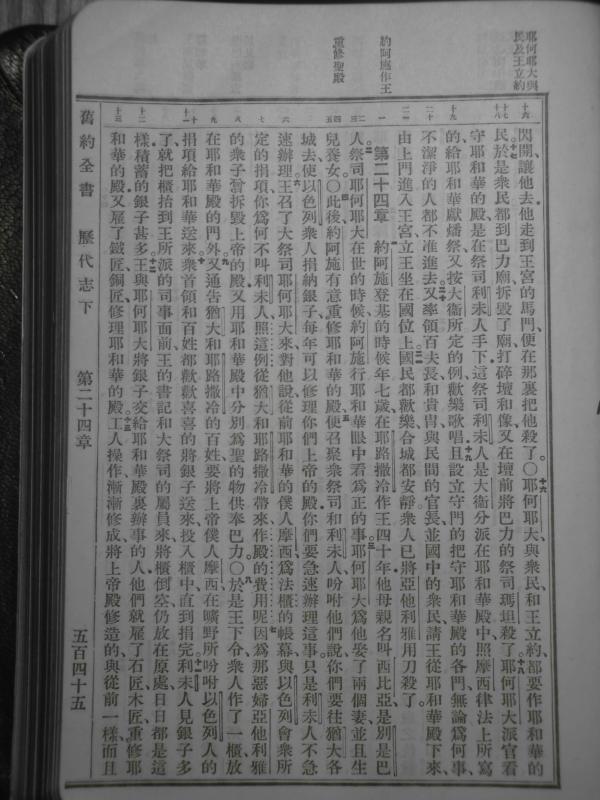 耶何耶大與
民及王立約
約阿施作王
重修聖殿
閃開讓他去他走到王宮的馬門便在那裏把他殺了○耶何耶大與衆民和王立約都要作耶和華的
民於是衆民都到巴力廟拆毀了廟打碎壇和像又在壇前將巴力的祭司瑪坦殺了耶何耶大派官看
守耶和華的殿是在祭司利未人手下這祭司利未人是大衞分派在耶和華殿中照摩西律法上所寫
的給耶和華獻燔祭又按大衞所定的例歡樂歌唱且設立守門的把守耶和華殿的各門無論爲何事
不潔淨的人都不准進去又率領百夫長和貴冑與民間的官長並國中的衆民請王從耶和華殿下來
由上門進入王宮立王坐在國位上國民都歡樂合城都安靜衆人已將亞他利雅用刀殺了
第二十四章 約阿施登基的時候年七歲在耶路撒冷作王四十年他母親名叫西比亞是別是巴
人祭司耶何耶大在世的時候約阿施行耶和華眼中看爲正的事耶何耶大爲他娶了兩個妻並且生
兒養女○此後約阿施有意重修耶和華的殿便召聚衆祭司和利未人吩咐他們說你們要往猶大各
城去使以色列衆人捐納銀子每年可以修理你們上帝的殿你們要急速辦理這事只是利未人不急
速辦理王召了大祭司耶何耶大來對他說從前耶和華的僕人摩西爲法櫃的帳幕與以色列會衆所
定的捐項你爲何不叫利未人照這例從猶大和耶路撒冷帶來作殿的費用呢因爲那惡婦亞他利雅
的衆子曾拆毀上帝的殿又用耶和華殿中分別爲聖的物供奉巴力○於是王下令衆人作了一櫃放
在耶和華殿的門外又通告猶大和耶路撒冷的百姓要將上帝僕人摩西在曠野所吩咐以色列人的
捐項給耶和華送來衆首領和百姓都歡歡喜喜的將銀子送來投入櫃中直到捐完利未人見銀子多
了就把櫃抬到王所派的司事面前王的書記和大祭司的屬員來將櫃倒空仍放在原處日日都是這
樣積蓄的銀子甚多王與耶何耶大將銀子交給耶和華殿裏辦事的人他們就雇了石匠木匠重修耶
和華的殿又雇了鐵匠銅匠修理耶和華的殿工人操作漸漸修成將上帝殿修造的與從前一樣而且
舊約全書 歷代志下 第二十四章 五百四十五